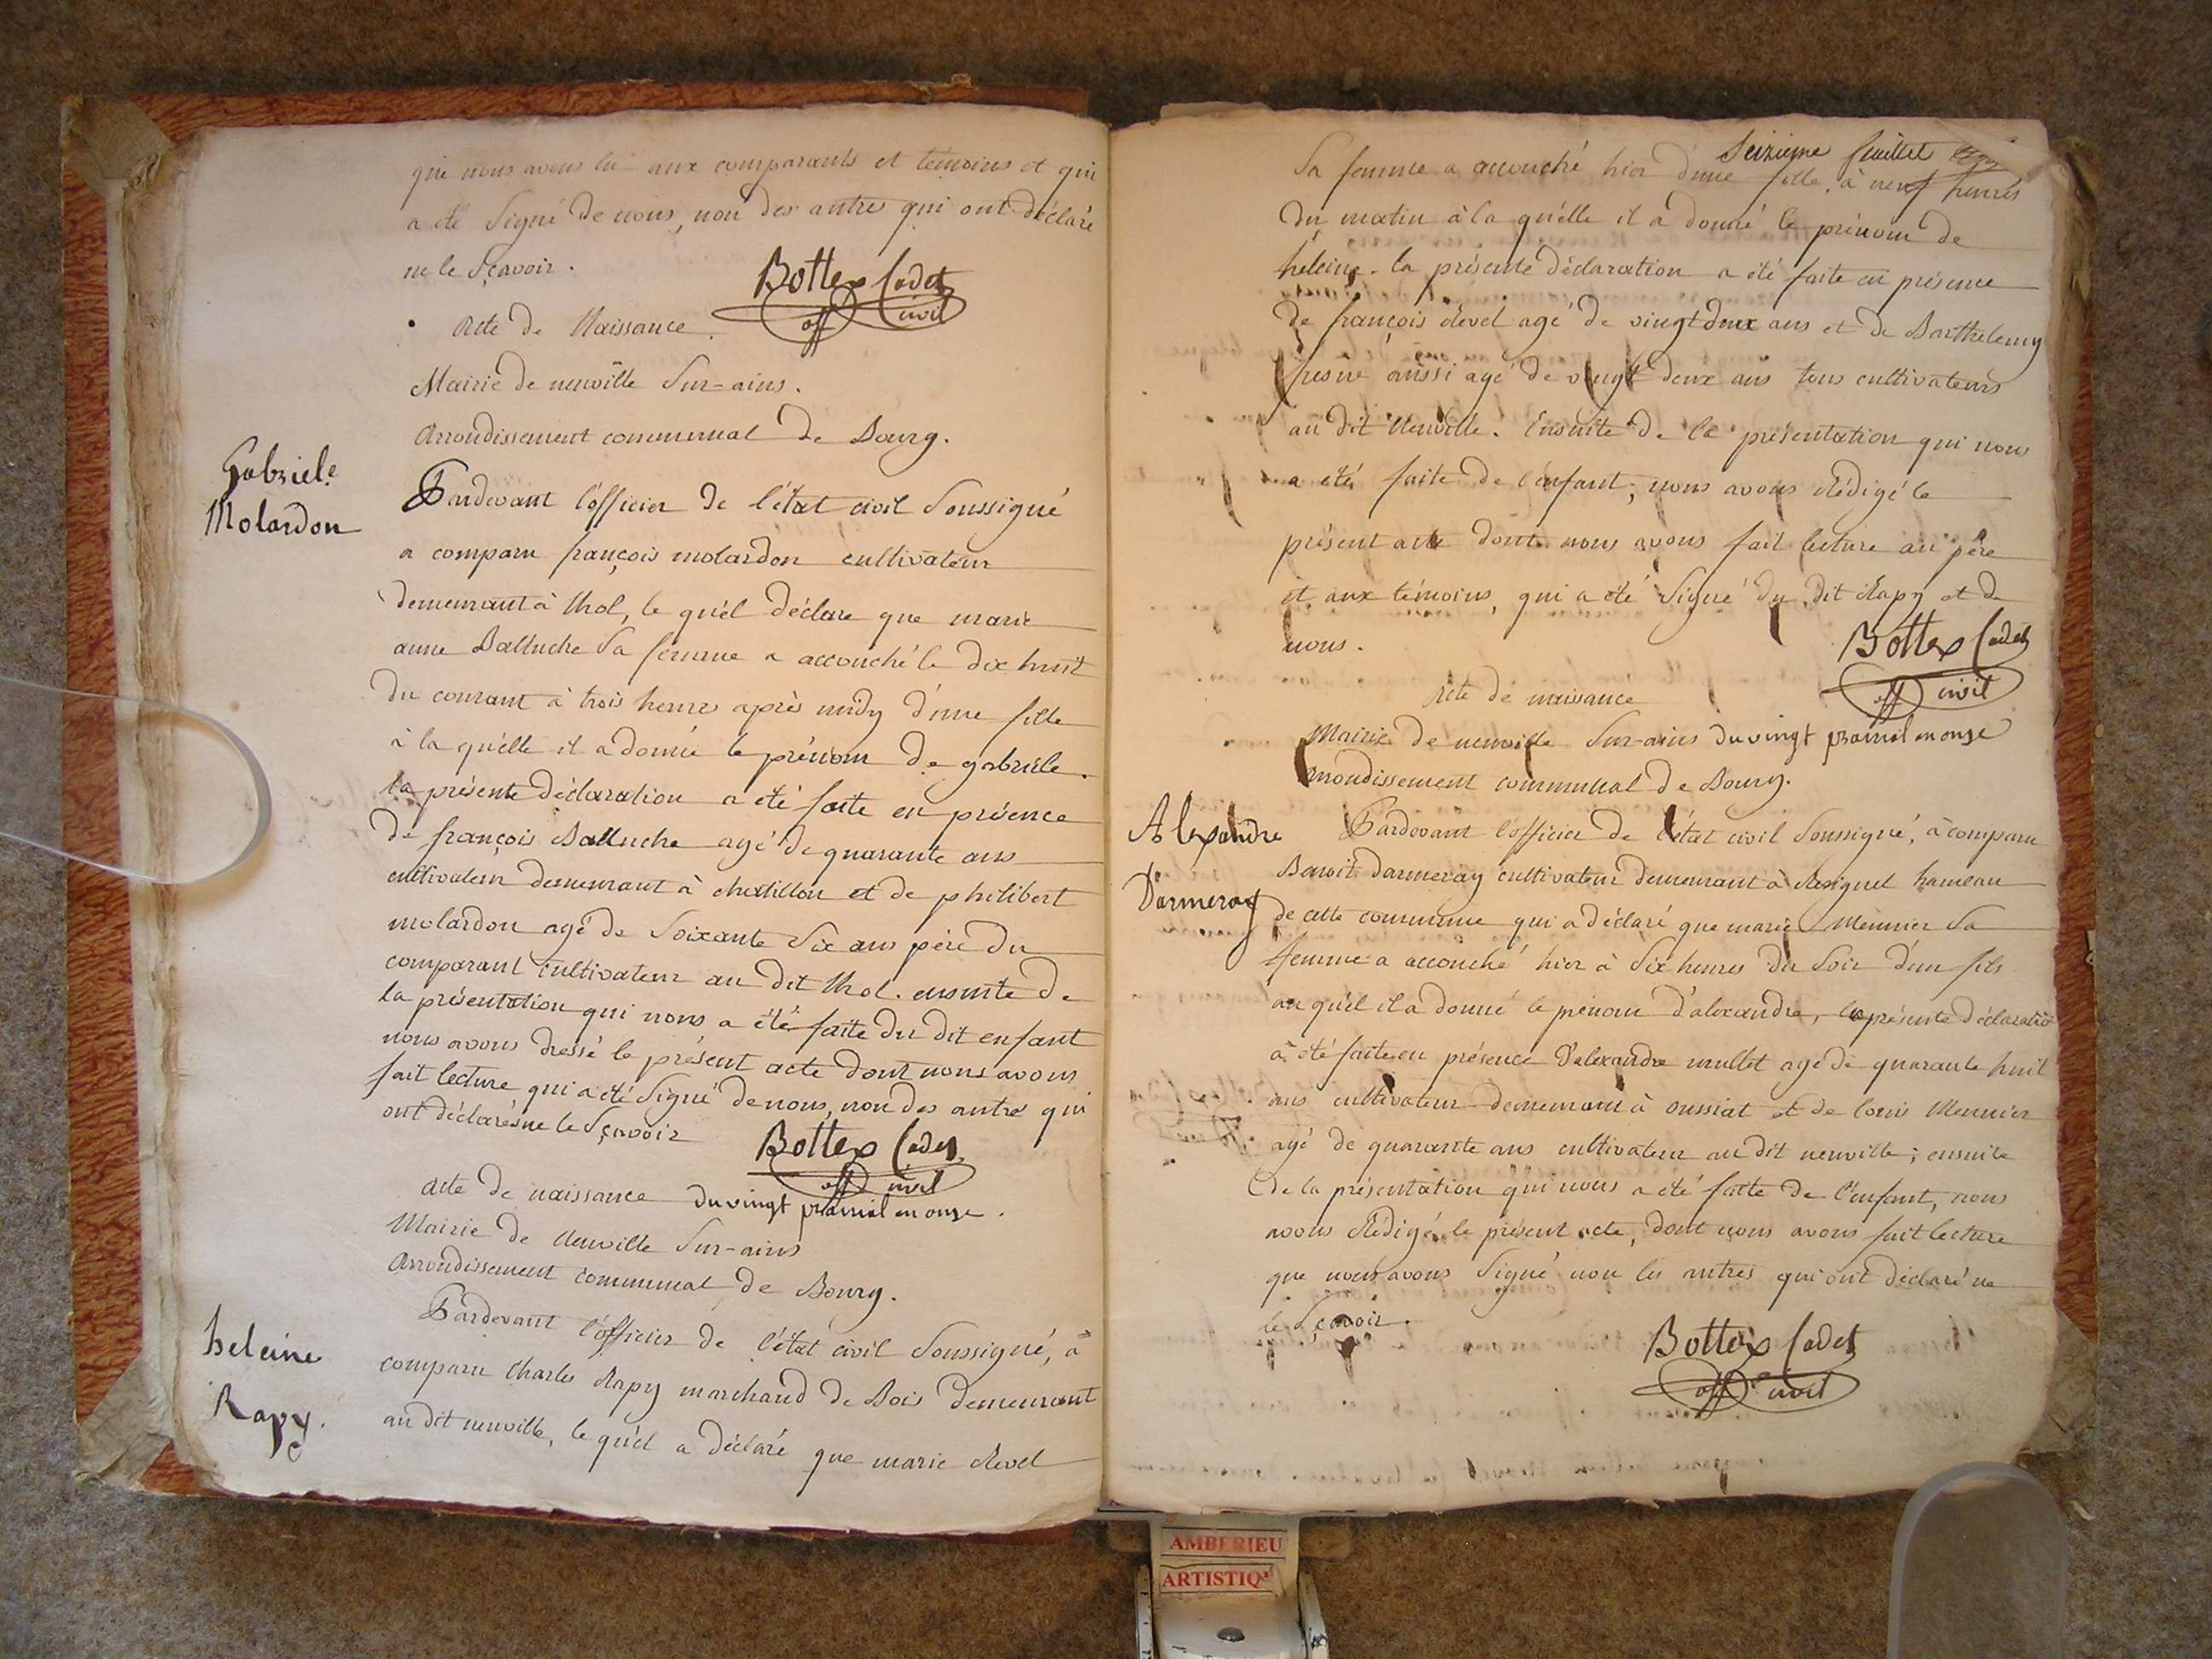 que nous avons lu aux comparants et témoins et qui
a été Signé De nous, non des autres qui ont déclaré
ne le Sçavoir.
Bottex Cadet
off civil
Acte De Naissance.
Mairie De neuville Sur-ains.
Arrondissement communal De Bourg.
Gabriele
Molardon
Pardevant l'officier De l'état civil Soussigné
a comparu françois molardon cultivateur
demeurant à thol, le quél déclare que marie
anne Balluche Sa femme a accouché le dix huit
du courant à trois heures après midy d'une fille
à la quélle il a donné le prénom De gabriele.
la présente déclaration a été faite en présence
De françois Balluche agé De quarante ans
cultivateur demeurant à chatillon et de philibert
molardon agé de Soixante Six ans père Du
comparant cultivateur au dit thol. ensuite De
la présentation qui nous a été faite Du Dit enfant
nous avons dressé le présent acte dont nous avons
fait lecture qui a été Signé De nous, non des autres qui
ont déclarés ne le Sçavoir
Bottex Cadet
off civil
acte De naissance du vingt prairial an onze.
Mairie De Neuville Sur-ains
Arrondissement communal De Bourg.
heleine
Rapy.
Pardevant l'officier De l'état civil Soussigné, à
comparu Charles Rapy marchand De Bois Demeurant
au dit neuville, le quél a Déclaré que marie Revel
Seizieme feuillet
Sa femme a accouché hier d'une fille, à neuf heures
Du matin à la quélle il a donné le prénom De
heleine. la présente déclaration a été faite en présence
De françois Revel agé De vingt deux ans et De Barthelemy
fresne aussi agé De vingt deux ans tous cultivateurs
au dit Neuville. Ensuite De la présentation qui nous
a été faite De l'enfant, nous avons Rédigé le
présent acte dont nous avons fait lecture au père
et aux témoins, qui a été Signé du dit Rapy et De
nous.
Bottex Cadet
off civil
Acte De naissance
Mairie De neuville Sur-ains du vingt prairial an onze
Arrondissement communal De Bourg.
Alexandre
Darmeray
Pardevant l'officier De l'état civil Soussigné, à comparu
Benoit Darmeray cultivateur demeurant à Resignel hameau
De cette commune qui a déclaré que marie Meunier Sa
femme a accouché hier à Six heures Du Soir D'un fils
au quél il a donné le prénom D'alexandre, la présente Déclaration
à été faite en présence D'alexandre mullet agé De quarante huit
ans cultivateur demeurant à oussiat et de louis Meunier
agé De quarante ans cultivateur au dit neuville; ensuite
De la présentation qui nous a été faite De l'enfant, nous
avons Rédigé le présent acte, dont nous avons fait lecture
que nous avons Signé non les autres qui ont déclaré ne
le Sçavoir.
Bottex Cadet
off civil
AMBERIEU
ARTISTIQ